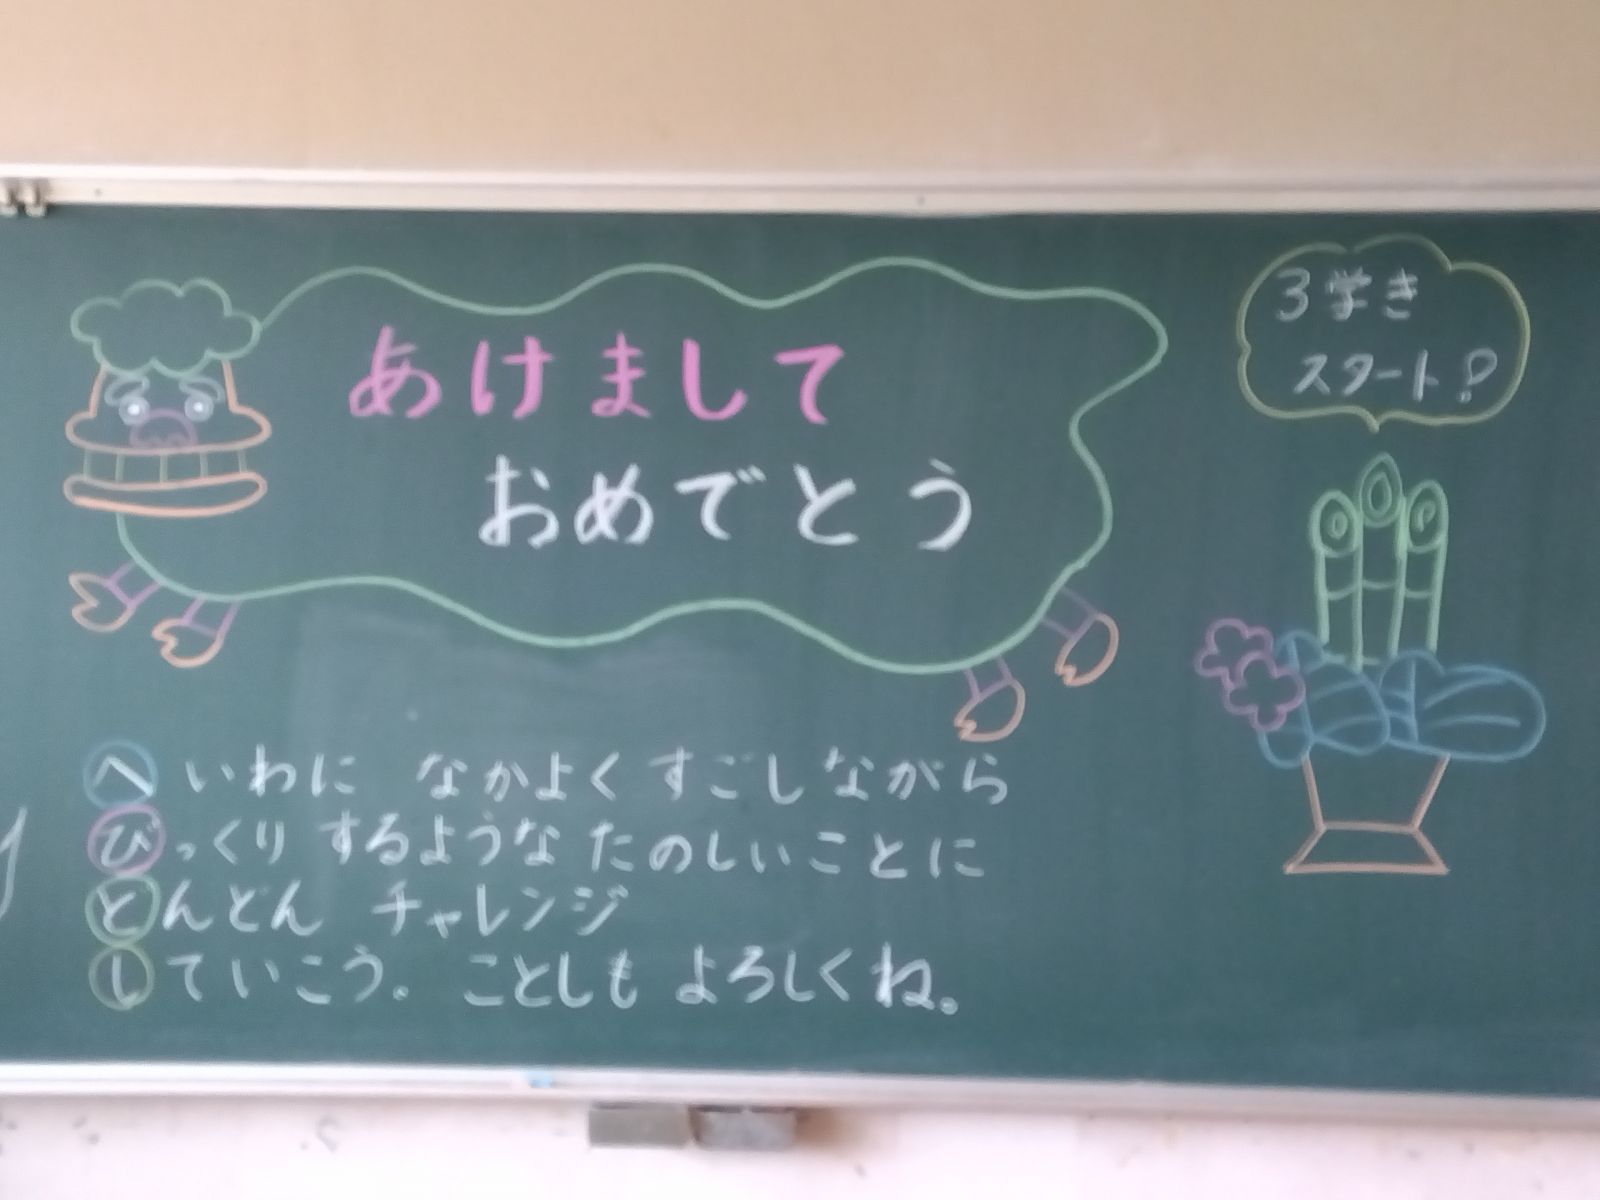 あけまして
おめでとう
3学き
スタート!
へいわに なかよく すごしながら
びっくり するような たのしいことに
どんどん チャレンジ
していこう。 ことしも よろしくね。